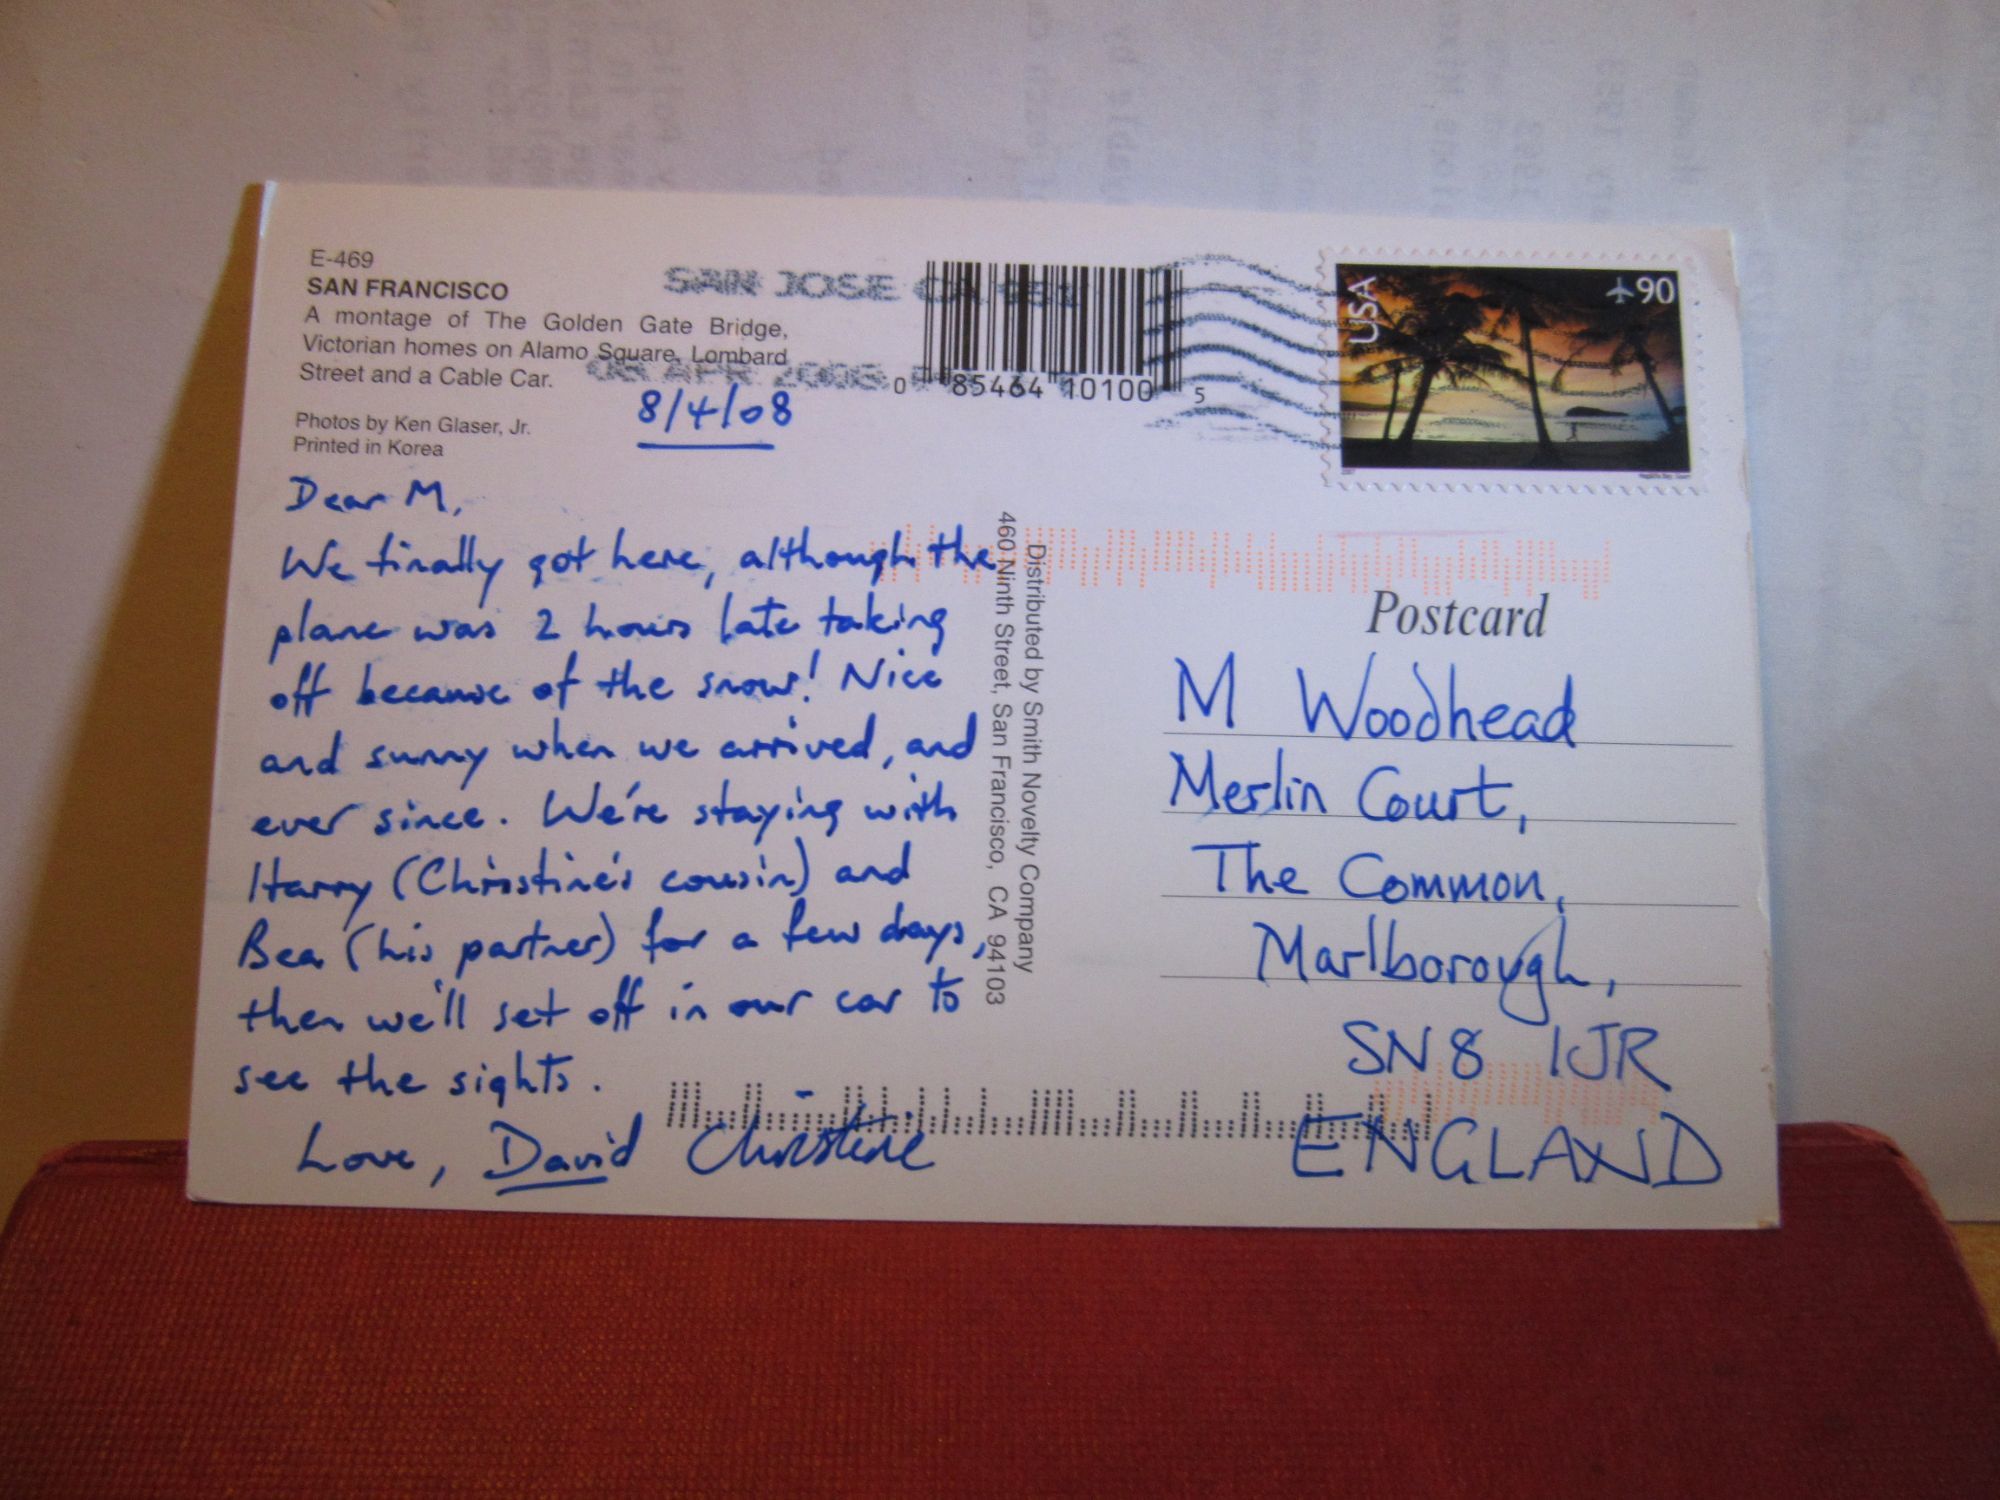 E-469
SAN FRANCISCO
A montage of The Golden Gate Bridge,
Victorian homes on Alamo Square, Lombard
Street and a Cable Car.
Photos by Ken Glaser, Jr.
Printed in Korea
SAN JOSE CA
APR 2008
0 85464 10100 5
USA
90
8/4/08
Dear M,
We finally got here, although the
plane was 2 hours late taking
off because of the snow! Nice
and sunny when we arrived, and
ever since. We're staying with
Harry (Christine's cousin) and
Bea (his partner) for a few days,
then we'll set off in our car to
see the sights.
Love, David Christine
Distributed by Smith Novelty Company
460 Ninth Street, San Francisco, CA 94103
Postcard
M Woodhead
Merlin Court,
The Common,
Marlborough,
SN8 1JR
ENGLAND